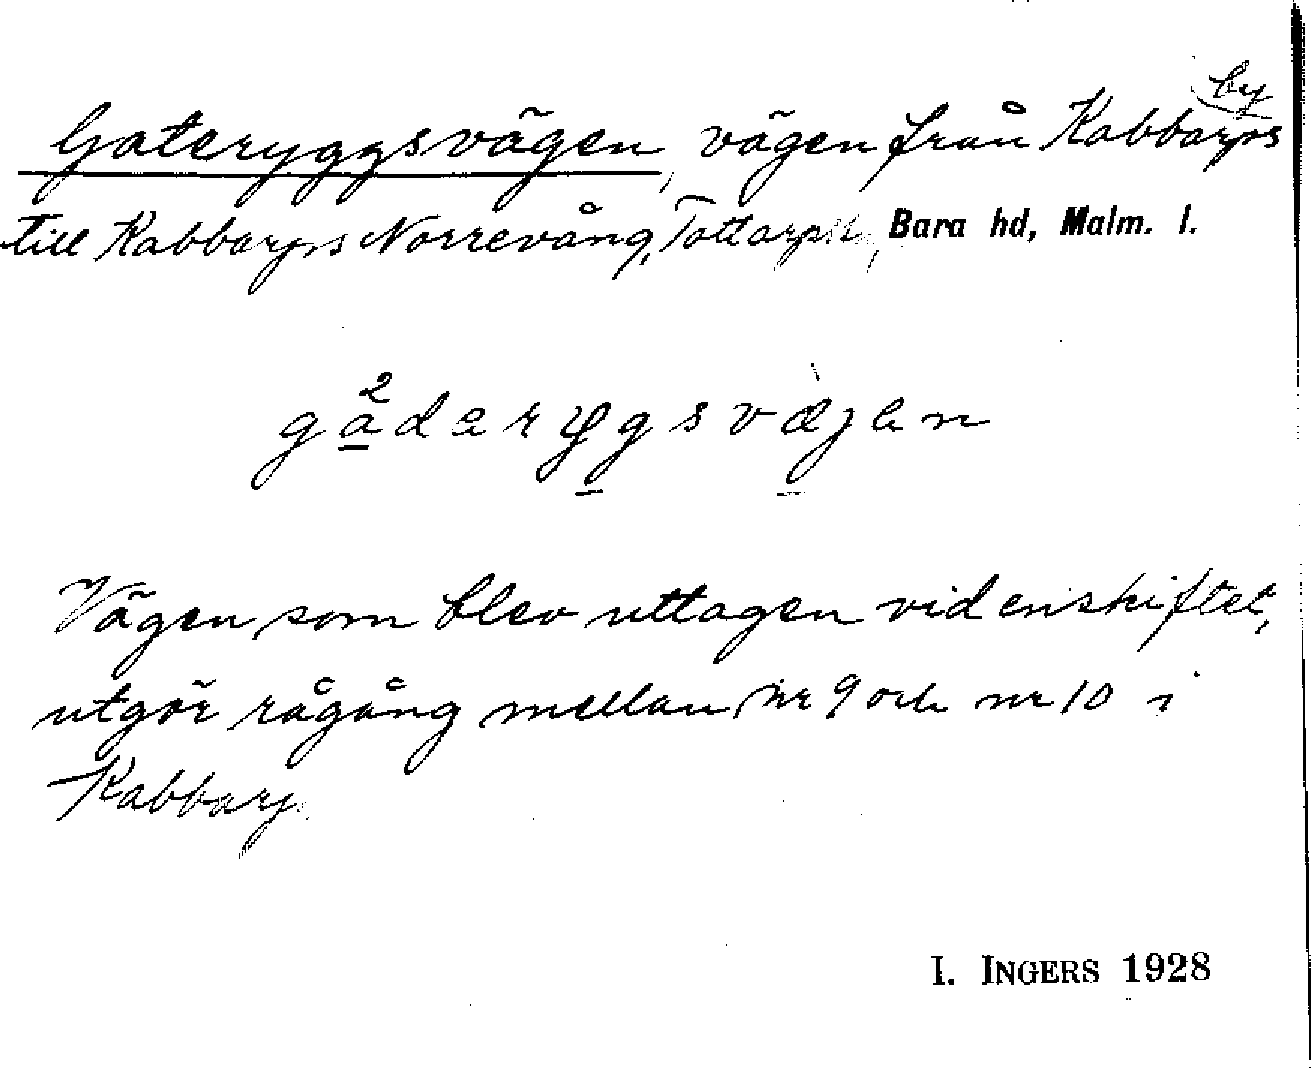 Gateryggsvägen, vägen från Kabbarps by
till Kabbarps Norrevång, Tottarps, Bara hd, Malm. l.
gådarygsvæjen
Vägen som blev uttagen vid enskiftet,
utgör rågång mellan nr 9 och nr 10 i
Kabbarp.
I. INGERS 1928